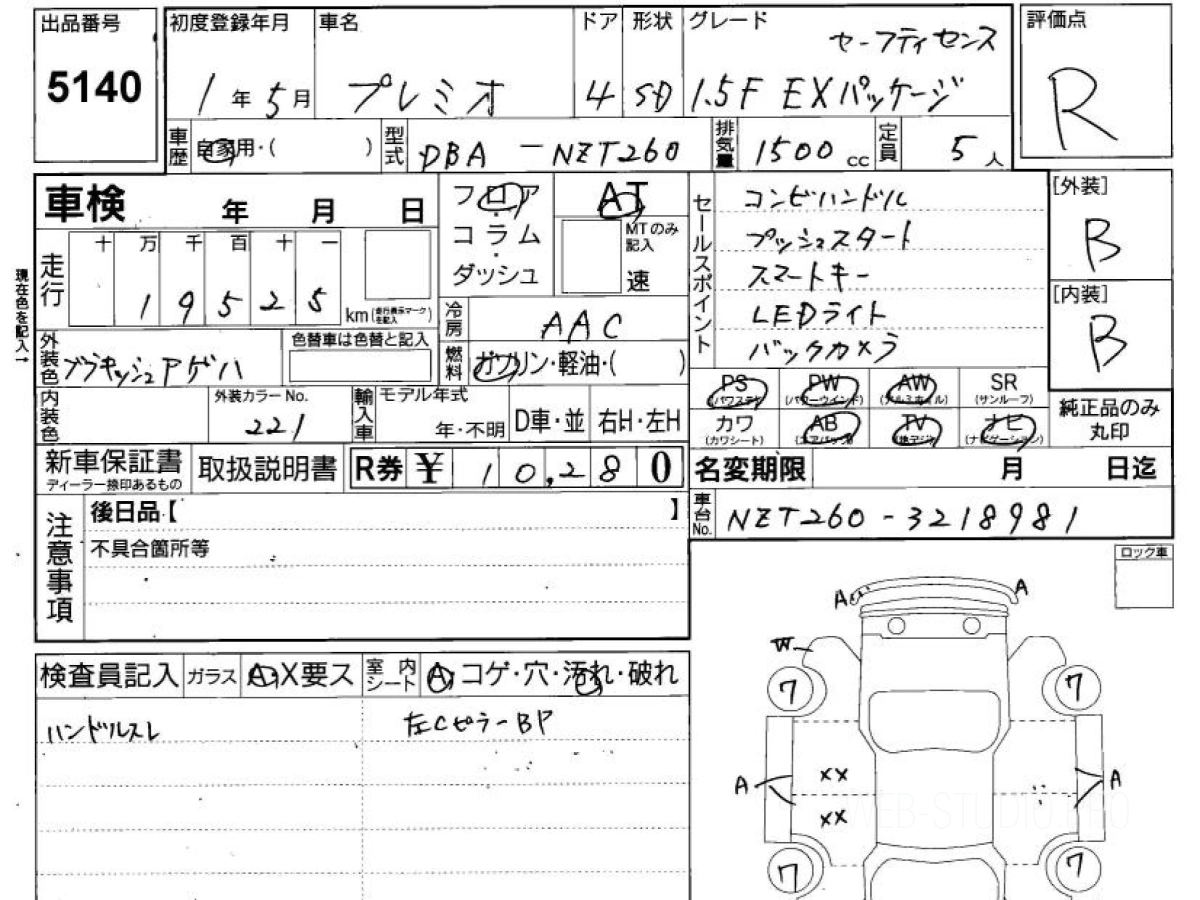 出品番号
5140
初度登録年月
1年5月
車名
プレミオ
ドア
4
形状
SD
グレード
セーフティセンス
1.5F EXパッケージ
評価点
R
車歴
自家用・( )
型式
DBA-NZT260
排気量
1500cc
定員
5人
車検 年 月 日
フロア・
コラム・
ダッシュ
AT
MTのみ記入
速
セールスポイント
コンビハンドル
プッシュスタート
スマートキー
LEDライト
バックカメラ
[外装]
B
[内装]
B
現在色を記入→
走行
十 万 千 百 十 一
1 9 5 2 5
km(走行表示マークを記入)
冷房
AAC
外装色
ブラキッシュアゲハ
色替車は色替と記入
燃料
ガソリン・軽油・( )
内装色
外装カラーNo.
221
輸入車
モデル年式
年・不明
D車・並
右H・左H
PS (パワステ)
PW (パワーウインド)
AW (アルミホイル)
SR (サンルーフ)
カワ (カワシート)
AB (エアバック)
TV (地デジ)
ナビ (ナビゲーション)
純正品のみ
丸印
新車保証書
ディーラー捺印あるもの
取扱説明書
R券 ¥ 10,280
名変期限 月 日迄
車台No.
NZT260-3218981
注意事項
後日品【 】
不具合箇所等
ロック車
検査員記入
ガラス
A・X要ス
室内シート
A・コゲ・穴・汚れ・破れ
ハンドルスレ
左CピラーBP
A A
W
7 7
XX
A A
XX
7 7
WEB-STUDIO PRO